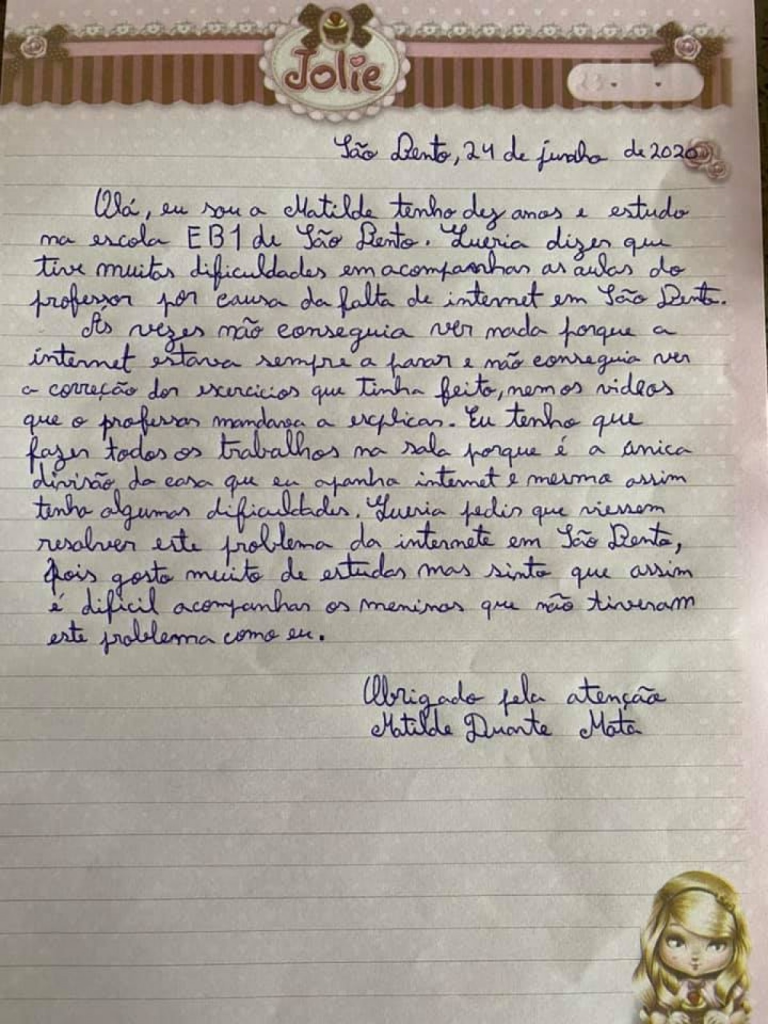 Jolie
São Bento, 24 de junho de 2020
Olá, eu sou a Matilde tenho dez anos e estudo
na escola EB1 de São Bento. Queria dizer que
tive muitas dificuldades em acompanhar as aulas do
professor por causa da falta de internet em São Bento.
Ás vezes não conseguia ver nada porque a
internet estava sempre a parar e não conseguia ver
a correção dos exercícios que tinha feito, nem os videos
que o professor mandava a explicar. Eu tenho que
fazer todos os trabalhos na sala porque é a única
divisão da casa que eu apanho internet e mesmo assim
tenho algumas dificuldades. Queria pedir que viessem
resolver este problema da internete em São Bento,
pois gosto muito de estudar mas sinto que assim
é dificil acompanhar os meninos que não tiveram
este problema como eu.
Obrigado pela atenção
Matilde Duarte Mota